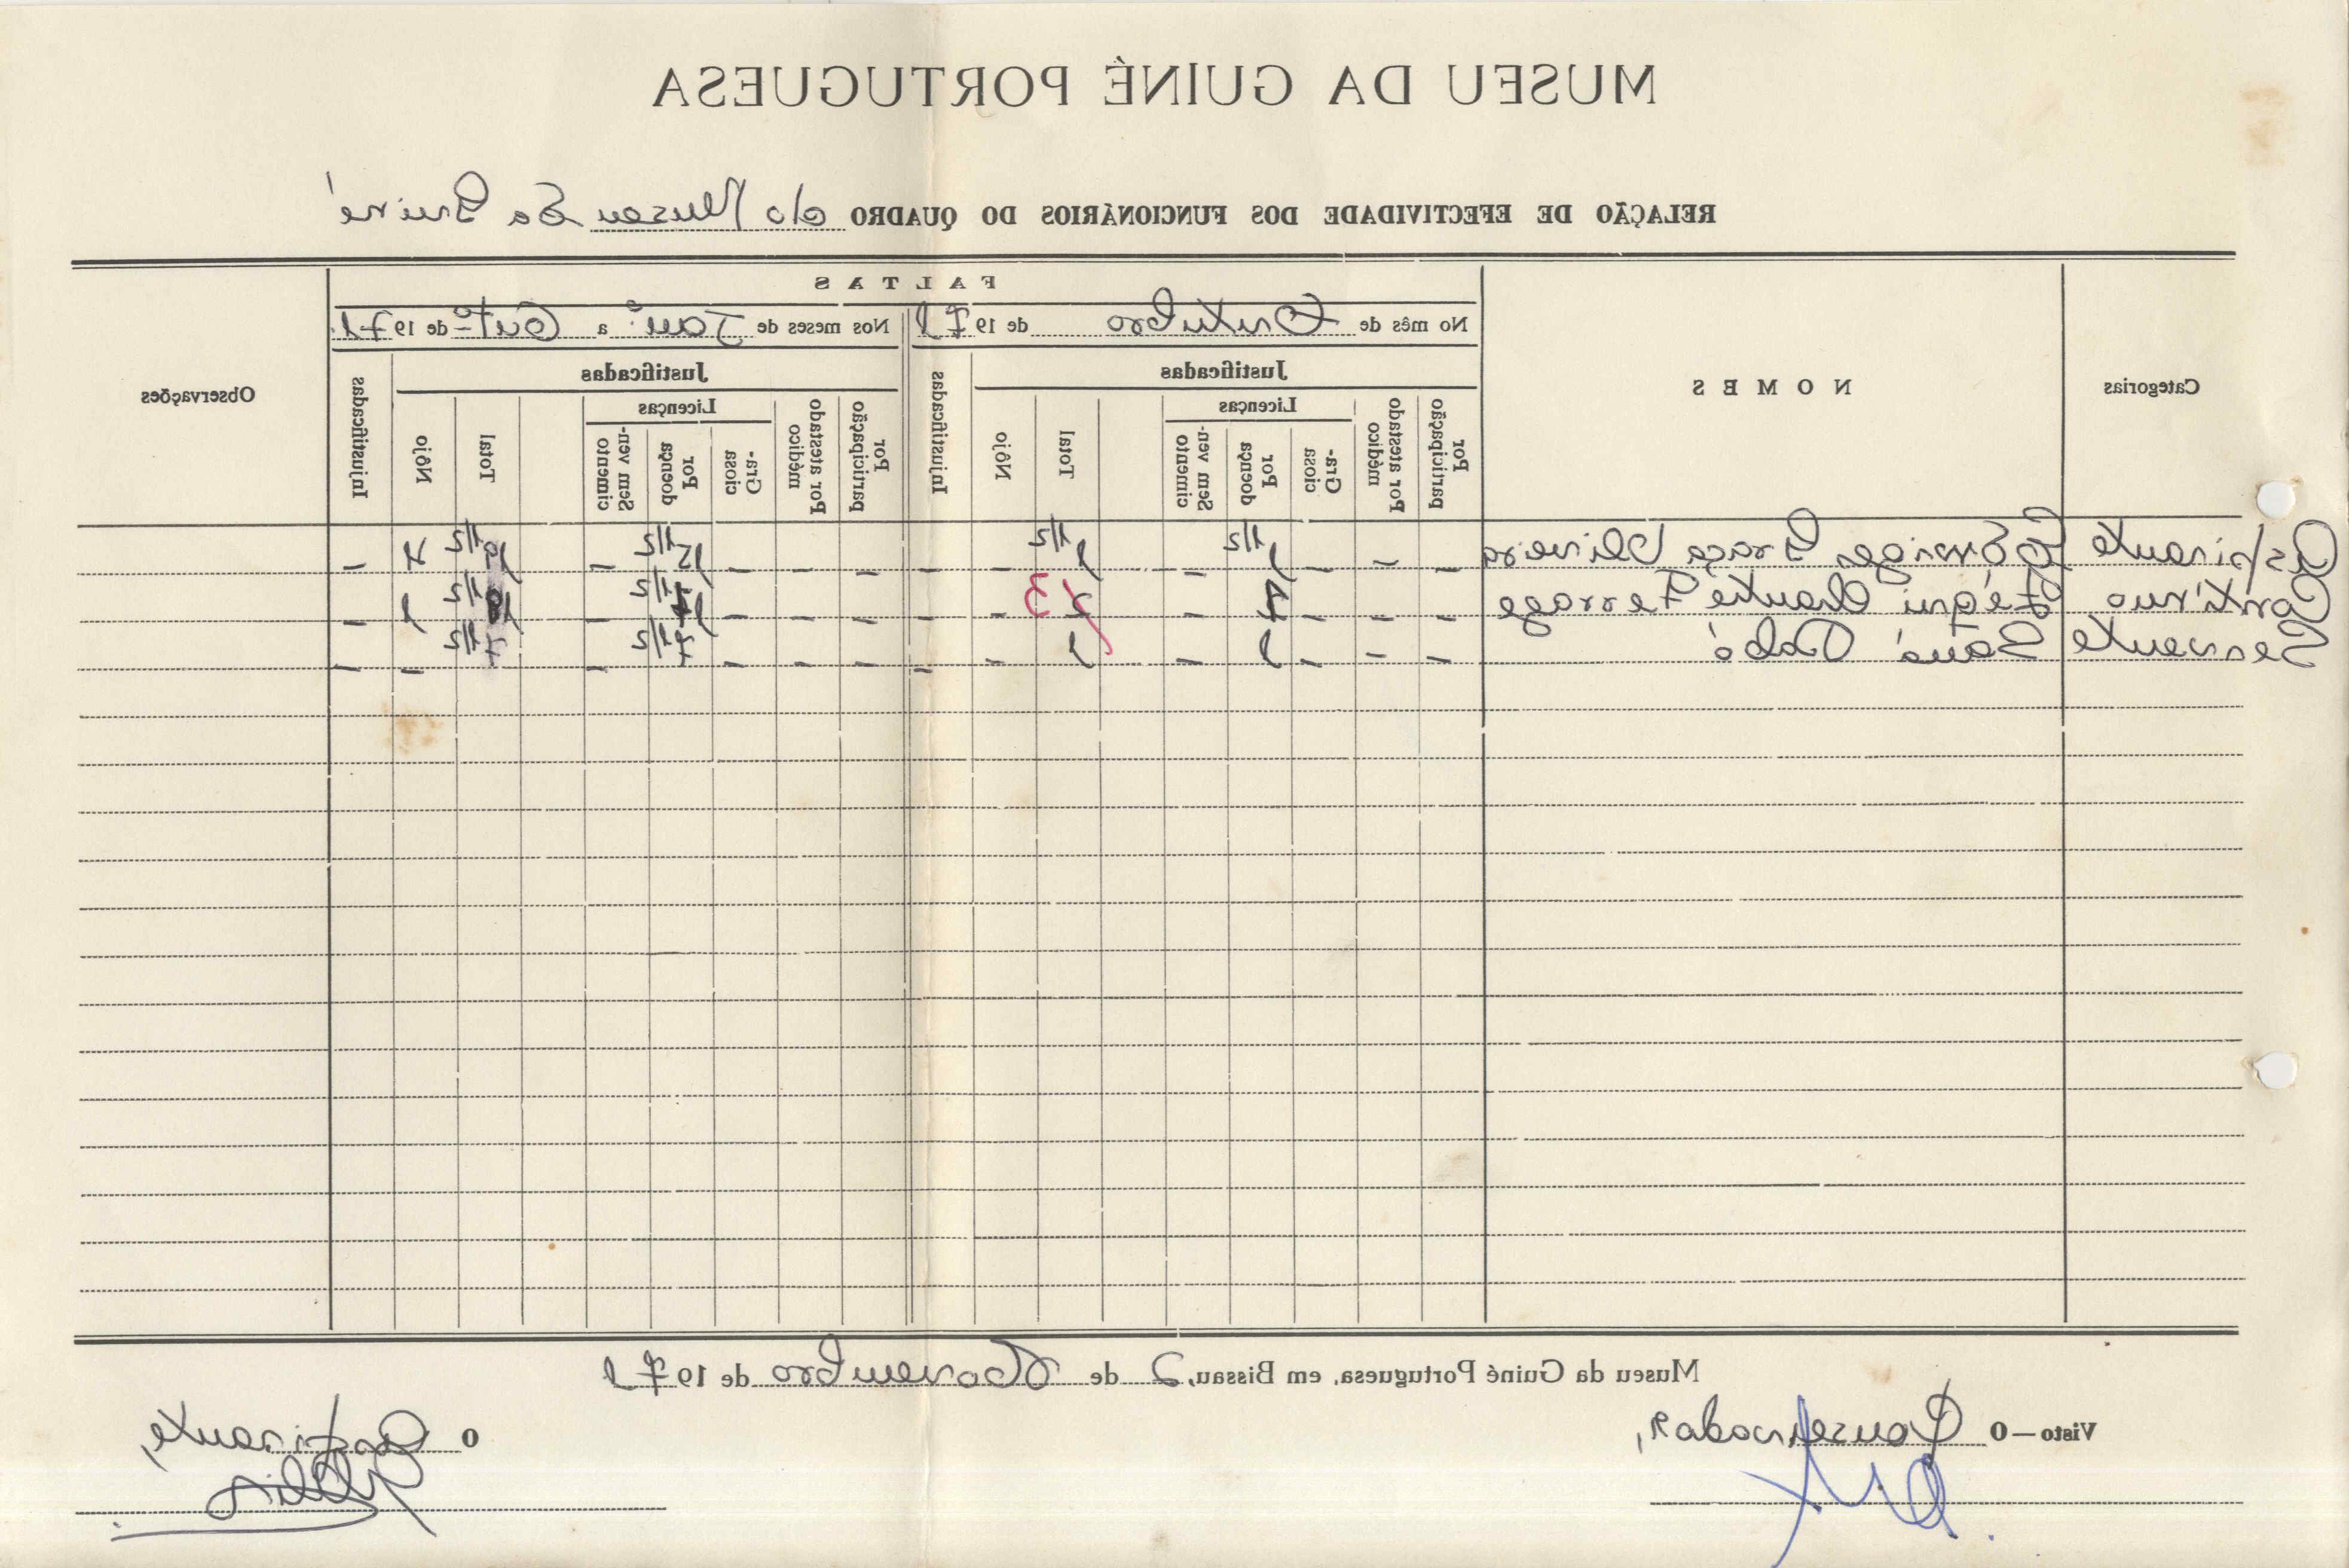 MUSEU DA GUINÉ PORTUGUESA
RELAÇÃO DE EFECTIVIDADE DOS FUNCIONÁRIOS DO QUADRO do Museu da Guiné
FALTAS
No mês de Outubro de 1971 Nos meses de Jan.º a Out.º de 1971.
Categorias NOMES Justificadas Injustificadas Justificadas Injustificadas Observações
Licenças Licenças
Por participação Por atestado médico Graciosa Por doença Sem vencimento Total Nôjo Por participação Por atestado médico Graciosa Por doença Sem vencimento Total Nôjo
Aspirante Graça Oliveira - - - 1 1/2 - 1 1/2 - - - - - 15 1/2 - 19 1/2 4 -
Contínuo - - - - 2 3 - - - - - - 1 -
Servente - - - 1 - 1 - - - - - 7 1/2 - 7 1/2 - -
Museu da Guiné Portuguesa, em Bissau, 2 de Novembro de 1971
Visto—O Conservador, O Aspirante,